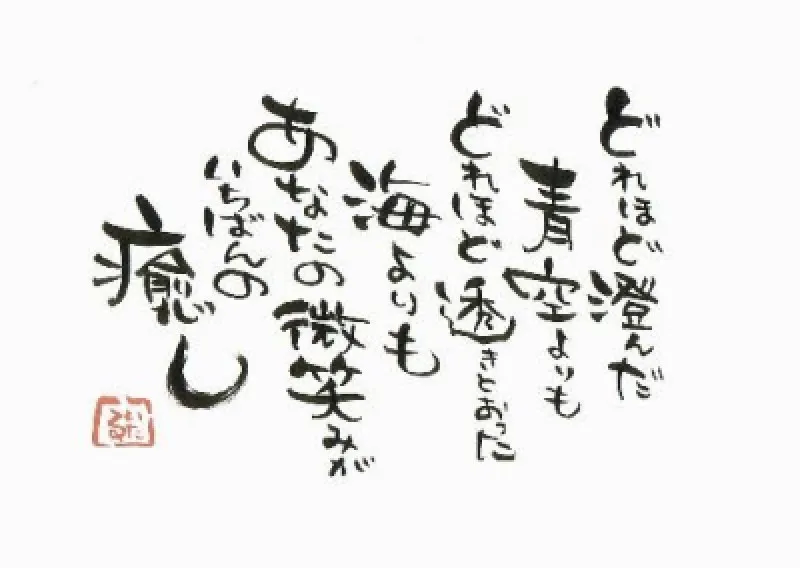 どれほど澄んだ
青空よりも
どれほど透きとおった
海よりも
あなたの微笑みが
いちばんの
癒し